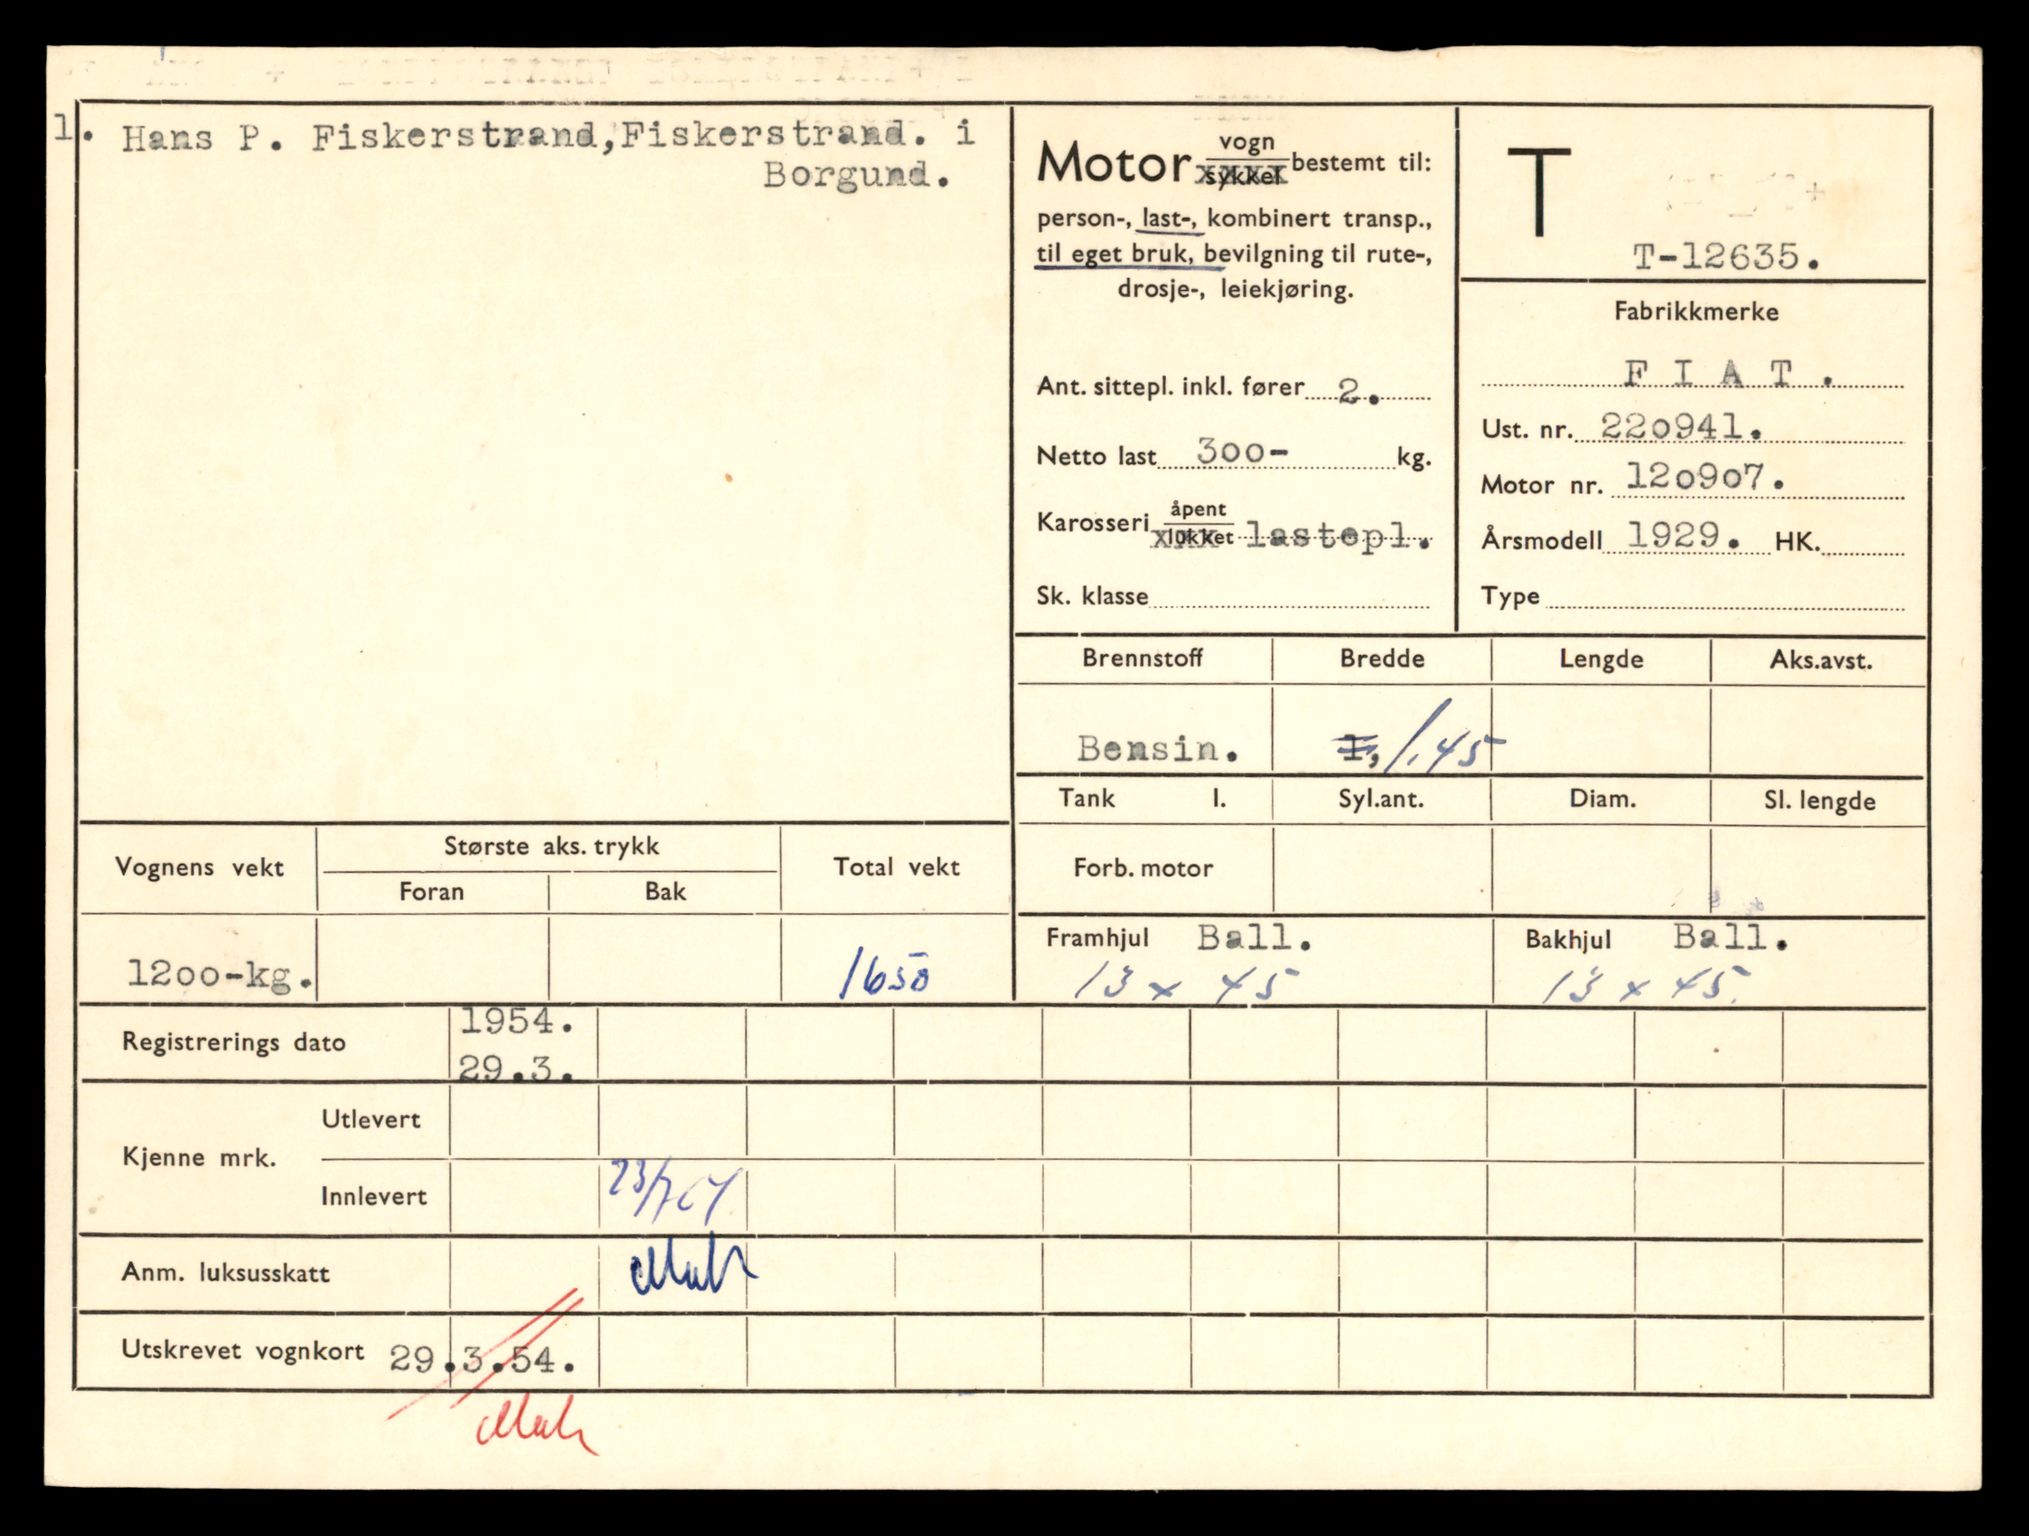 1. Hans P. Fiskerstrand, Fiskerstrand. i
Borgund.
Motor vogn bestemt til:
sykkel
person-, last-, kombinert transp.,
til eget bruk, bevilgning til rute-,
drosje-, leiekjøring.
Ant. sittepl. inkl. fører 2.
Netto last 300- kg.
Karosseri åpent lastepl.
lukket
Sk. klasse
T
T-12635.
Fabrikkmerke
F I A T .
Ust. nr. 220941.
Motor nr. 120907.
Årsmodell 1929. HK.
Type
Brennstoff Bredde Lengde Aks.avst.
Bensin. 1, 1.45
Tank l. Syl.ant. Diam. Sl. lengde
Forb. motor
Framhjul Ball. Bakhjul Ball.
13 x 45 13 x 45
Vognens vekt Største aks. trykk Total vekt
Foran Bak
1200-kg. 1650
Registrerings dato 1954.
29.3.
Kjenne mrk. Utlevert
Innlevert 23/7 64
Anm. luksusskatt
Utskrevet vognkort 29.3.54.